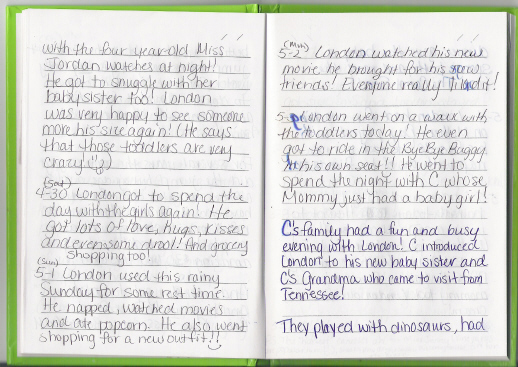 with the four year-old Miss
Jordan watches at night!
He got to snuggle with her
baby sister too! London
was very happy to see someone
more his size again! (He says
that those toddlers are very
crazy! )
(Sat)
4-30 London got to spend the
day with the girls again! He
got lots of love, hugs, kisses
and even some drool! And grocery
shopping too!
(Sun)
5-1 London used this rainy
Sunday for some rest time.
He napped, watched movies
and ate popcorn. He also went
shopping for a new outfit!!
(Mon)
5-2 London watched his new
movie he brought for his
friends! Everyone really it!
London went on a walk with
the toddlers today! He even
got to ride in the Bye Bye Buggy
in his own seat!! He went to
spend the night with C whose
Mommy just had a baby girl!
C's family had a fun and busy
evening with London! C introduced
London to his new baby sister and
C's Grandma who came to visit from
Tennessee!
They played with dinosaurs, had